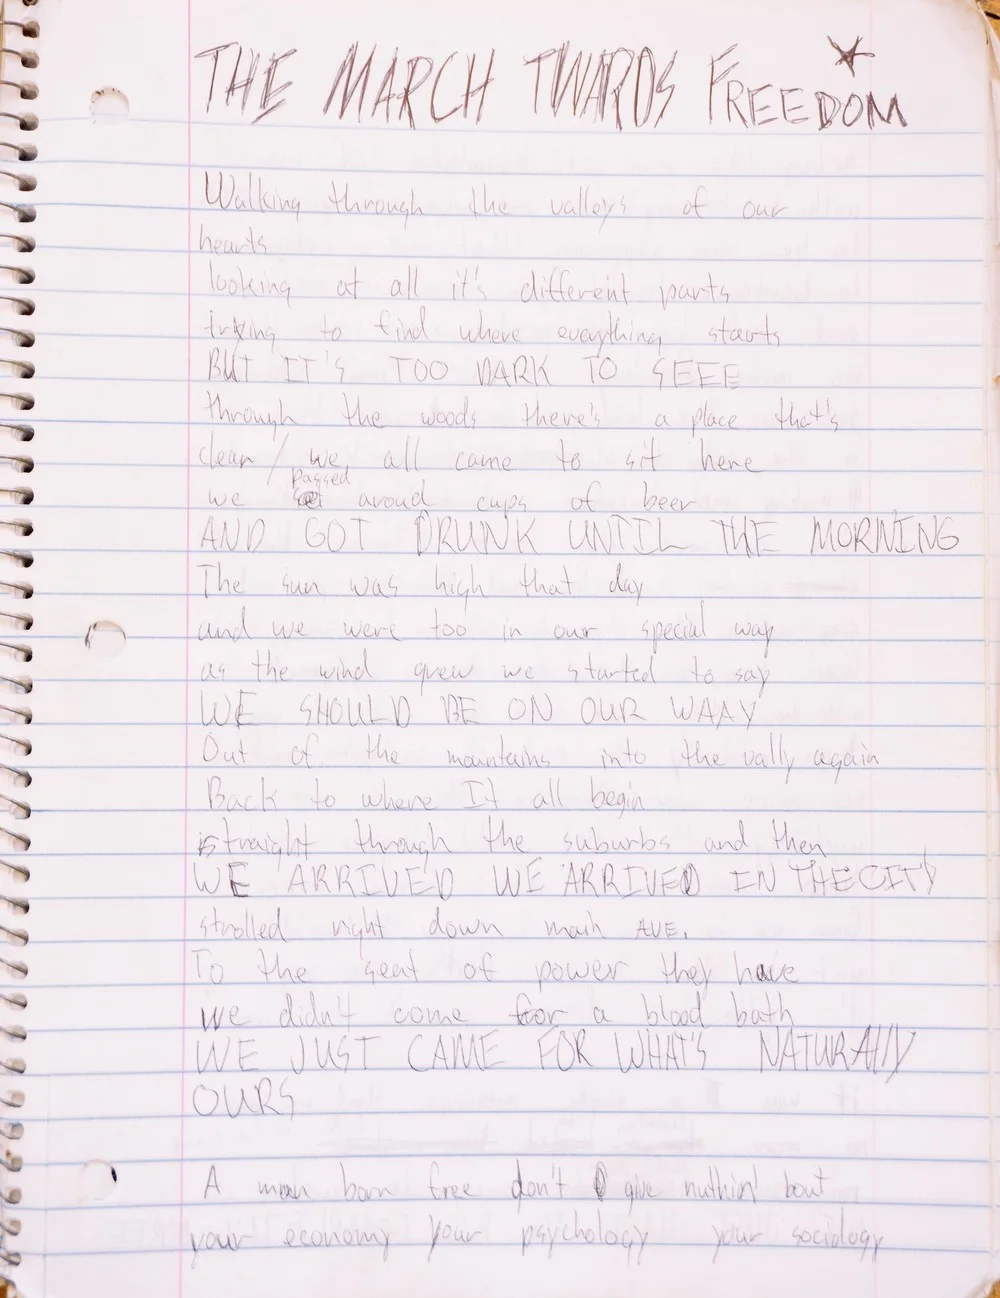 THE MARCH TWARDS FREEDOM
Walking through the valleys of our
hearts
looking at all it's different parts
trying to find where everything starts
BUT IT'S TOO DARK TO SEEE
through the woods there's a place that's
clear / we all came to sit here
passed
we aroud cups of beer
AND GOT DRUNK UNTIL THE MORNING
The sun was high that day
and we were too in our special way
as the wind grew we started to say
WE SHOULD BE ON OUR WAAY
Out of the mountains into the vally again
Back to where It all begin
straight through the suburbs and then
WE ARRIVED WE ARRIVED IN THE CITY
strolled right down main AVE.
To the seat of power they have
we didn't come for a blood bath
WE JUST CAME FOR WHAT'S NATURALLY
OURS
A man born free don't give nuthin' bout
your economy your psychology your sociology